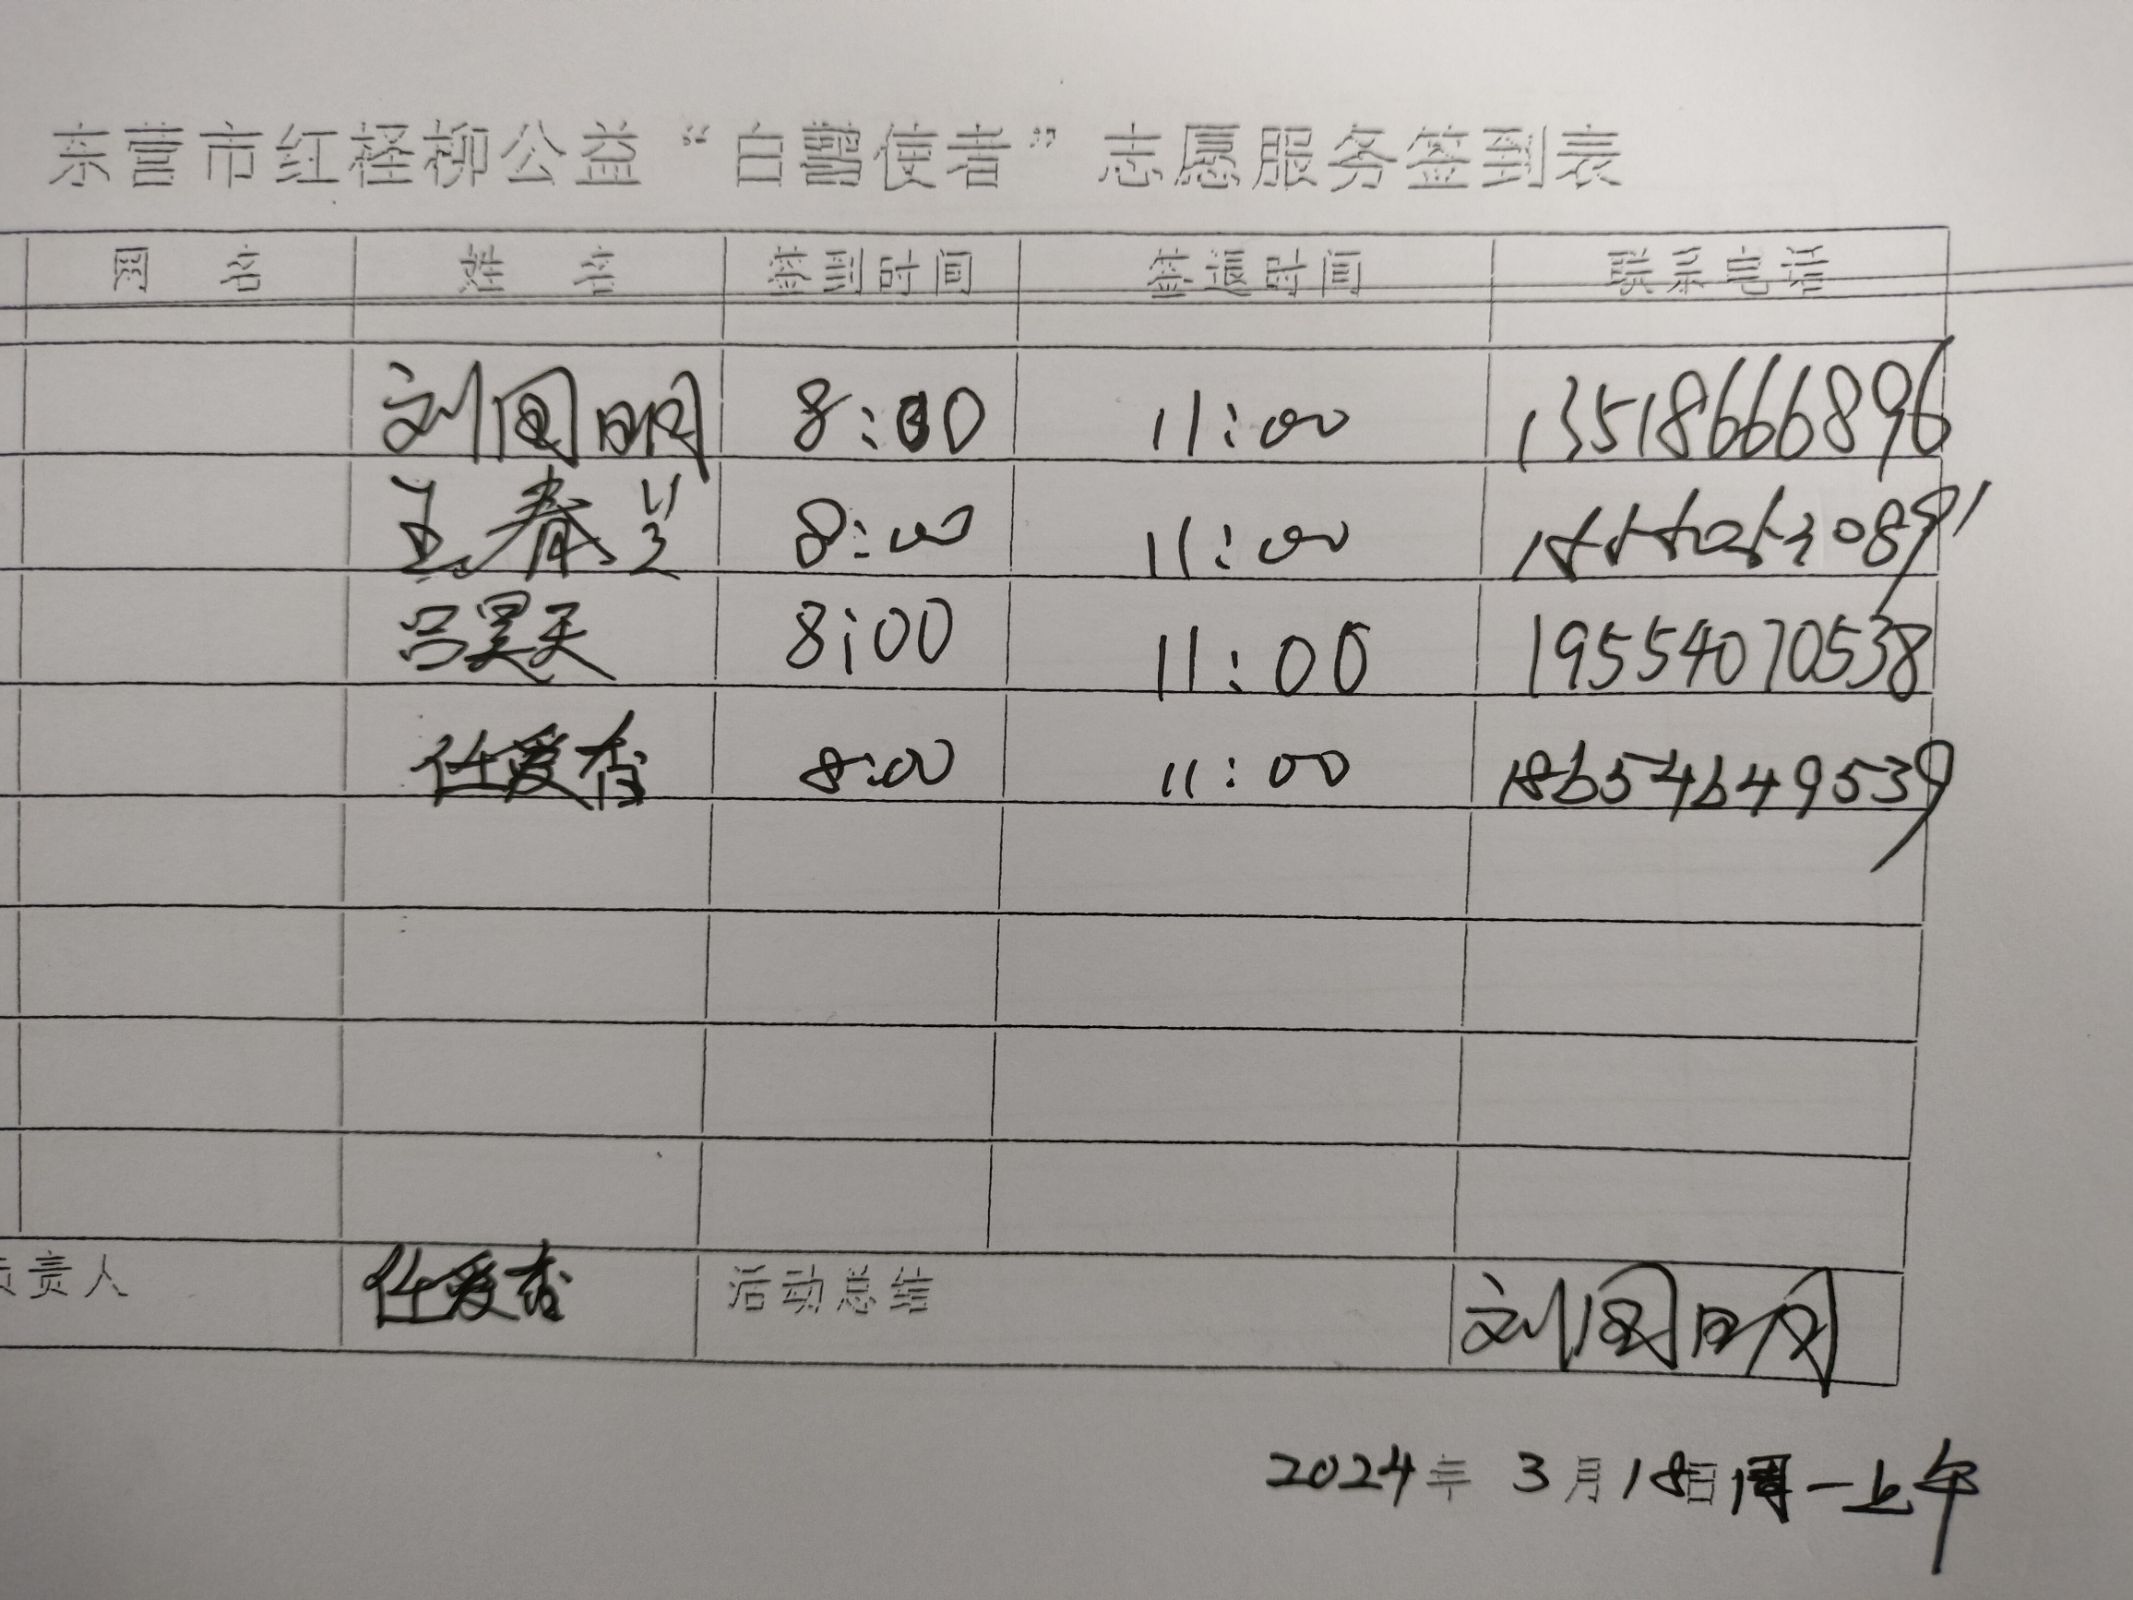 东营市红柽柳公益“白鹭使者”志愿服务签到表
网 名 姓 名 签到时间 签退时间 联系电话
刘国明 8:00 11:00 13518666896
王春兰 8:00 11:00
吕昊天 8:00 11:00 19554070538
任爱香 8:00 11:00 18654649539
负责人 任爱香 活动总结 刘国明
2024年 3月18日周一上午